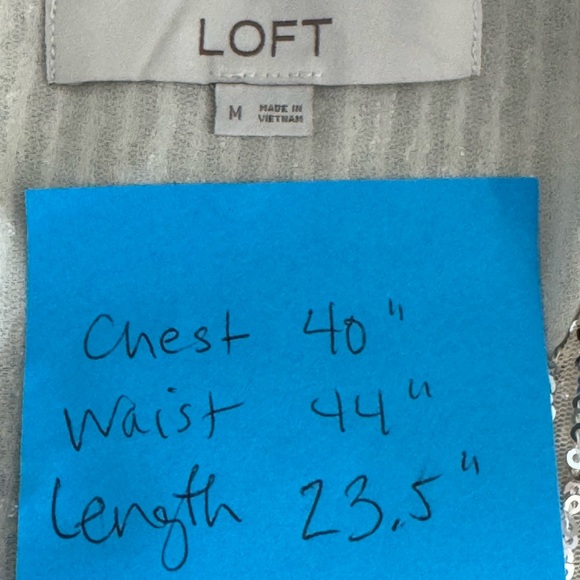 LOFT
M MADE IN
VIETNAM
Chest 40"
Waist 44"
Length 23.5"